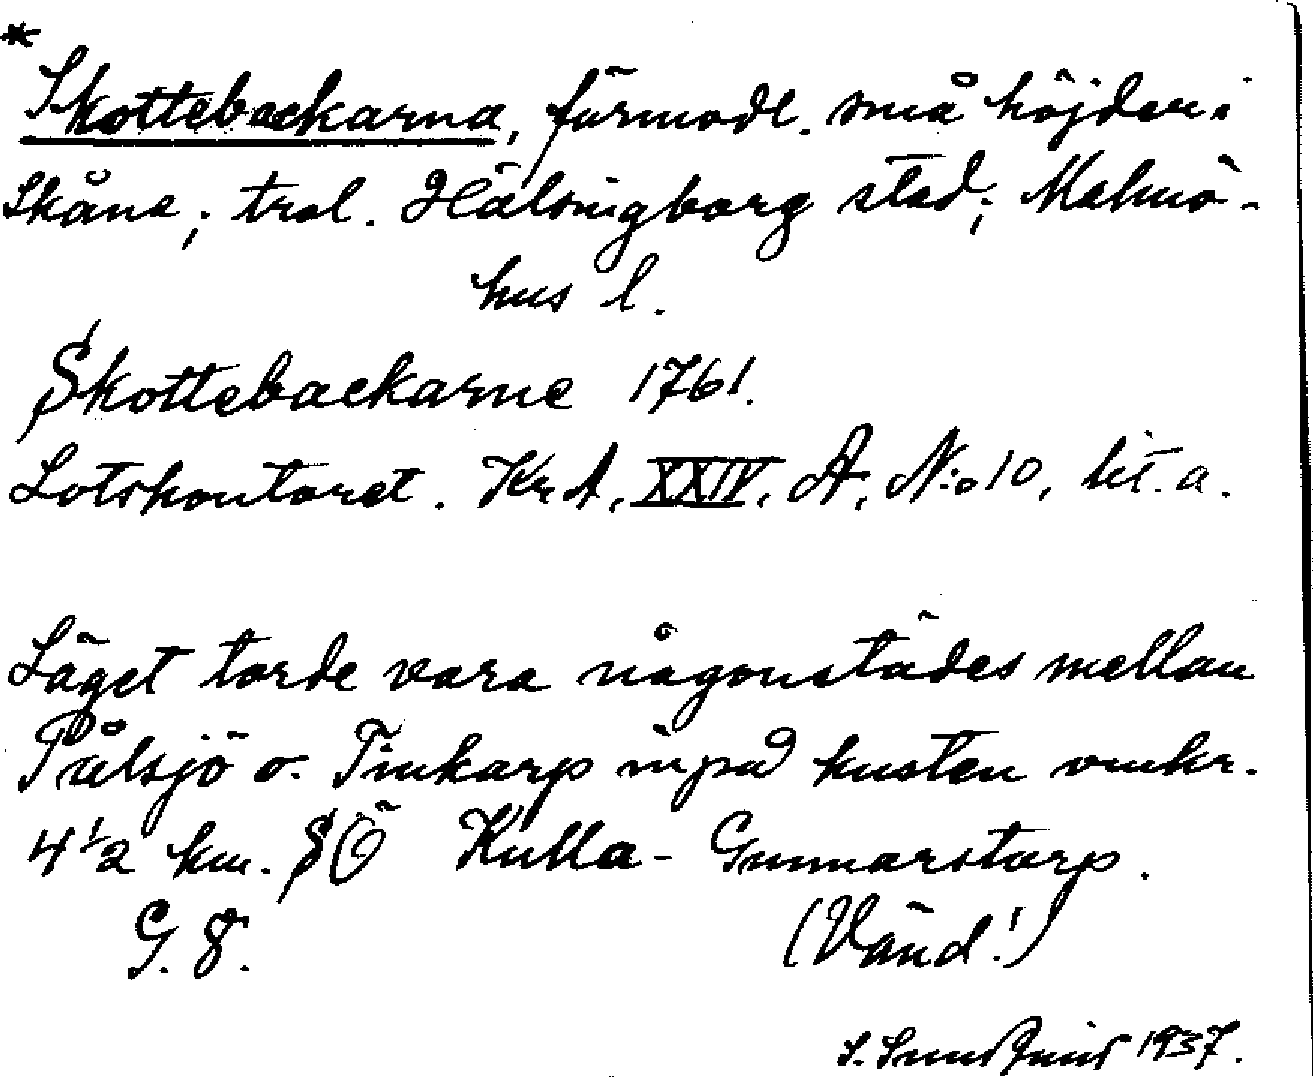 *
Skottebackarna, förmodl. små höjder i
Skåne; trol. Hälsingborg stad; Malmö-
hus l.
Skottebackarne 1761.
Lotskontoret. KrA. XXIV. A, N:o 10, lit. a.
Läget torde vara någonstädes mellan
Pålsjö o. Tinkarp inpå kusten omkr.
4 1/2 km. SÖ Kulla-Gunnarstorp.
G. 8. (Vänd!)
S. 1937.